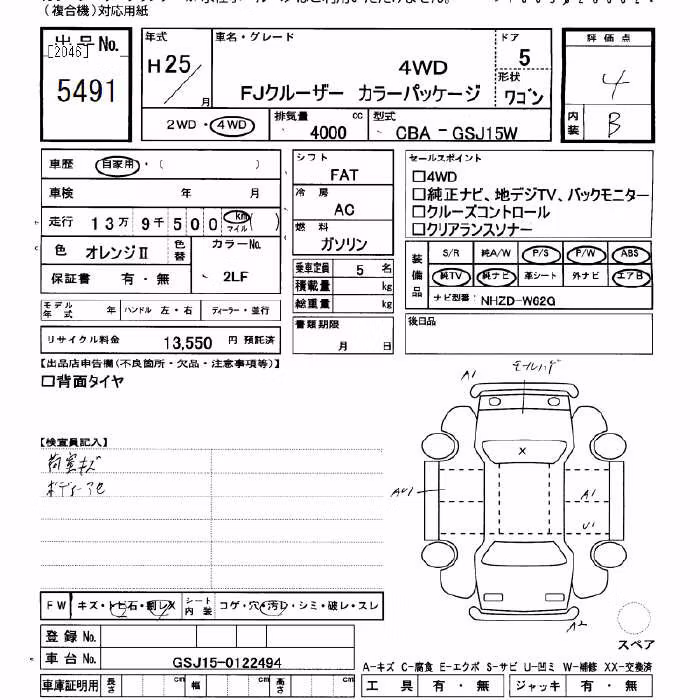 (複合機)対応用紙
出品No.
[2046]
5491
年式
H25/
月
車名・グレード
4WD
FJクルーザー カラーパッケージ
ドア
5
形状
ワゴン
2WD・4WD
排気量
4000
cc
型式
CBA - GSJ15W
評価点
4
内装
B
車歴 自家用・( )
車検 年 月
走行 13万9千500 km マイル ( )
色 オレンジⅡ 色替
カラーNo.
2LF
保証書 有・無
モデル年式 年 ハンドル 左・右 ディーラー・並行
リサイクル料金 13,550 円 預託済
シフト
FAT
冷房
AC
燃料
ガソリン
乗車定員 5 名
積載量 kg
総重量 kg
書類期限
月 日
セールスポイント
□4WD
□純正ナビ、地デジTV、バックモニター
□クルーズコントロール
□クリアランスソナー
装備品
S/R 純A/W P/S P/W ABS
純TV 純ナビ 革シート 外ナビ エアB
ナビ型番: NHZD-W62G
後日品
【出品店申告欄(不良箇所・欠品・注意事項等)】
□背面タイヤ
【検査員記入】
荷室キズ
A1
X
A1
U1
A2
スペア
FW キズ・トビ石・割レX
シート内装 コゲ・穴・汚レ・シミ・破レ・スレ
登録No.
車台No. GSJ15-0122494
車庫証明用 長さ cm 幅 cm 高さ cm
A-キズ C-腐食 E-エクボ S-サビ U-凹ミ W-補修 XX-交換済
工具 有・無 ジャッキ 有・無